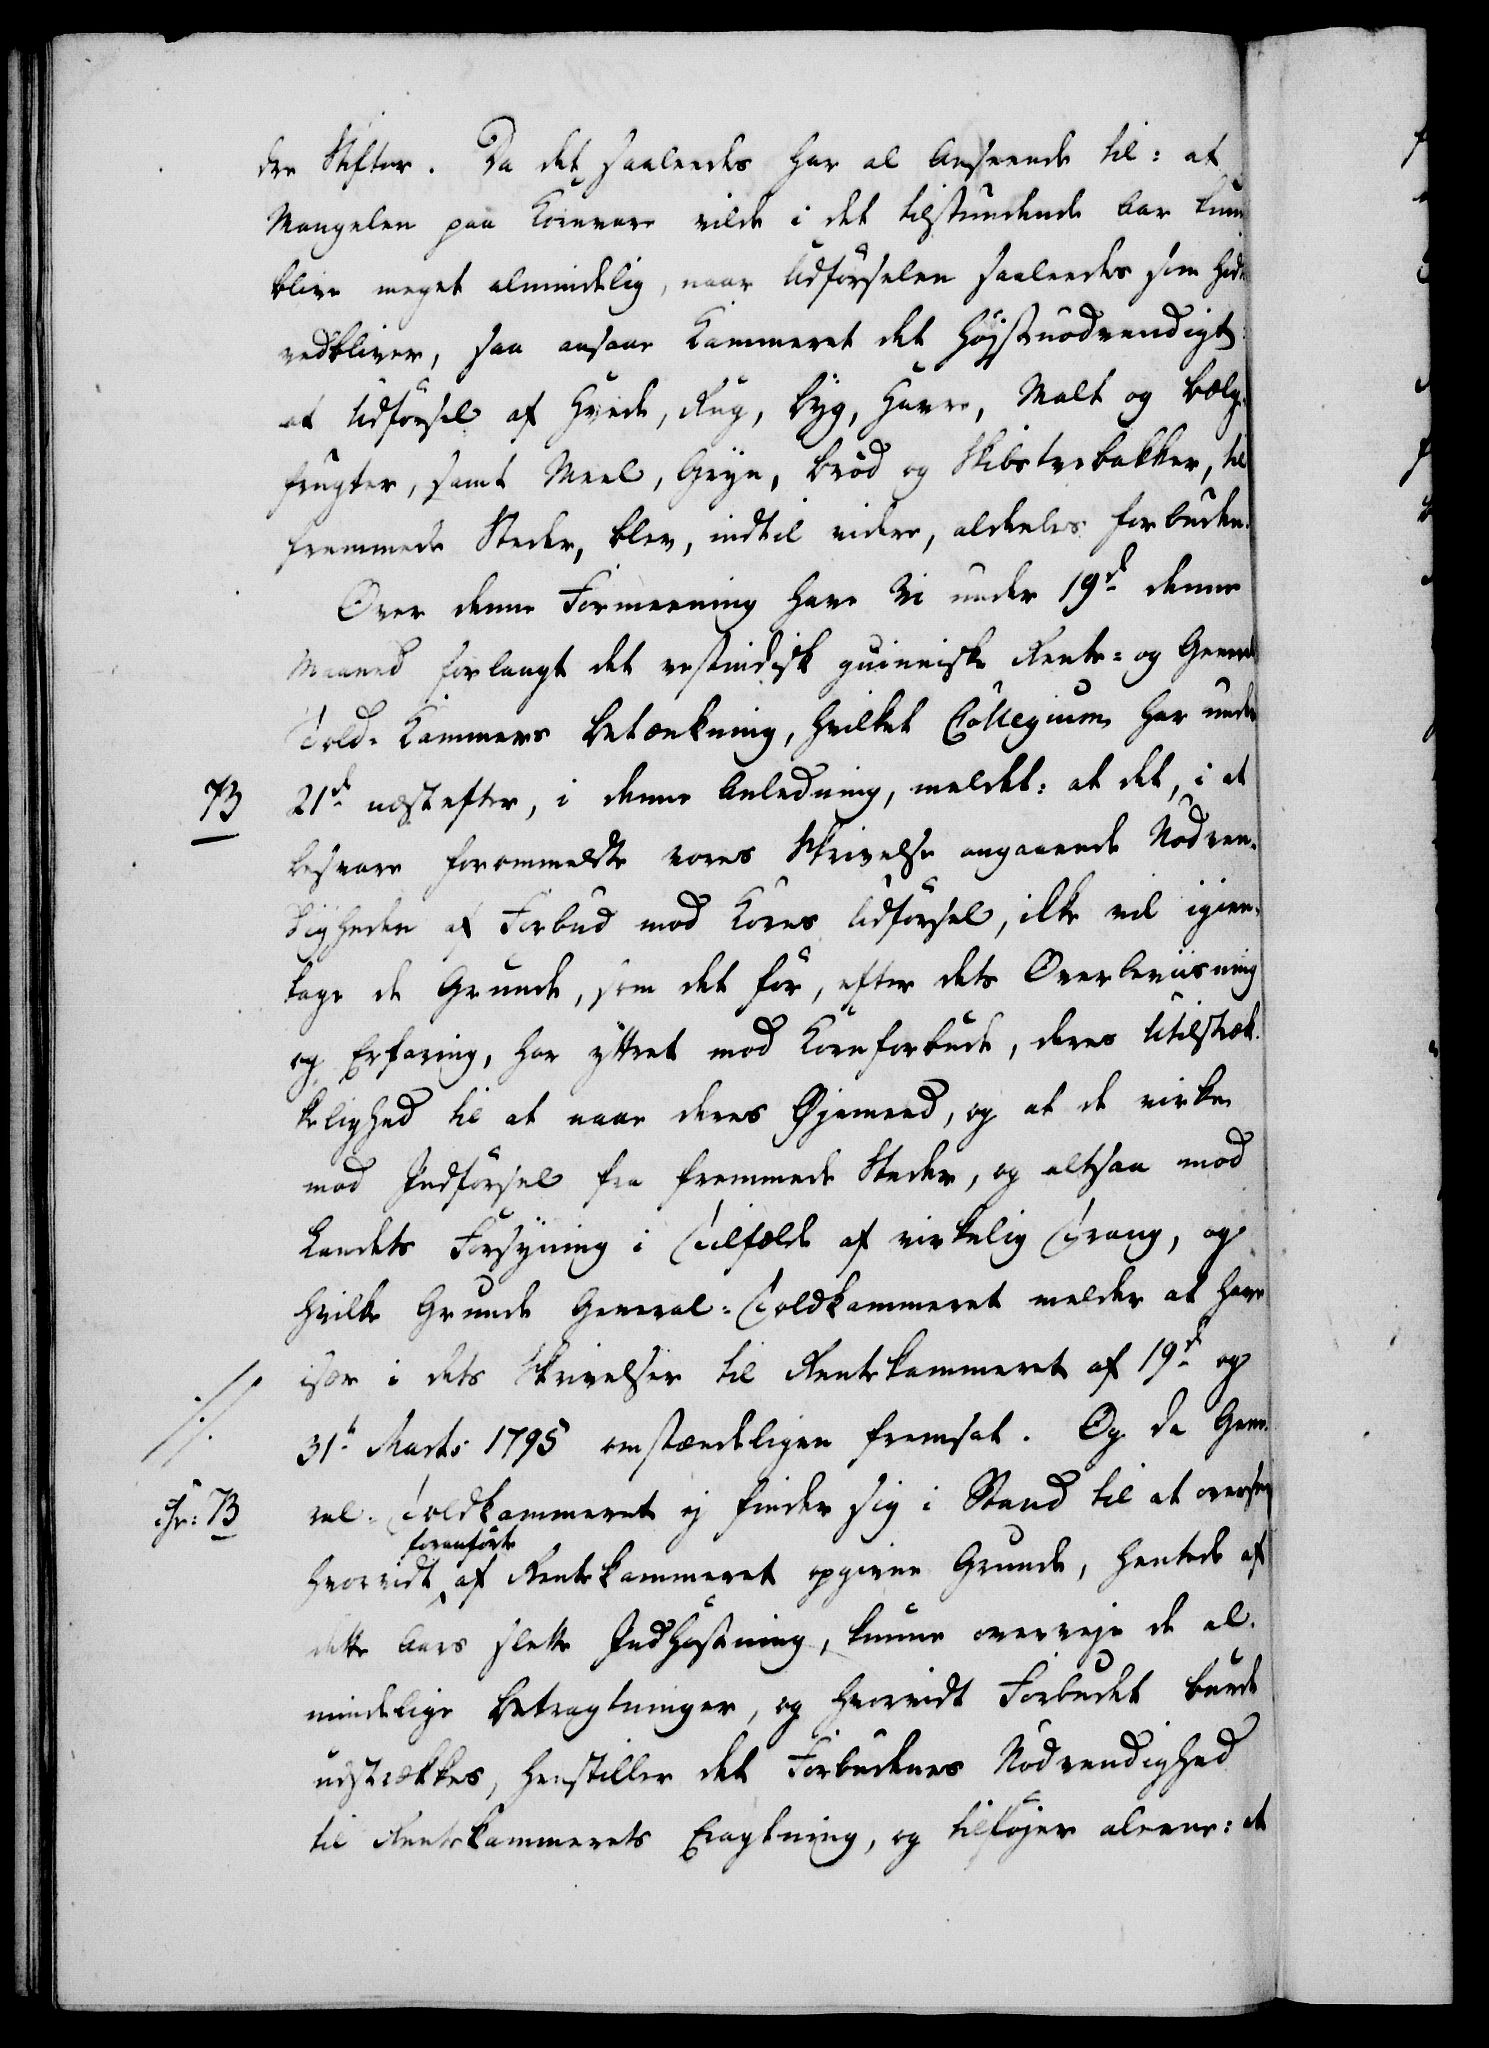 dre Stifter. Da det saaledes har al Anseende til: at
Mangelen paa Kornvare vilde i det tilstundende Aar kun
blive meget almindelig, naar Udførselen saaledes som hid
vedbliver, saa ansaae Kammeret det høystnødvendigt:
at Udførsel af Hvede, Rug, Byg, Havre, Malt og Bælg-
frugter, samt Meel, Gryn, Brød og Skibstvebakker, til
fremmede Steder, blev, indtil videre, aldeeles forbuden.
Over denne Formeening have Vi under 19d denne
Maaned forlangt det vestindisk guineiske Rente- og General
Told-Kammers Betænkning, hvilket Collegium har under
73 21d næstefter, i denne Anledning, meldet: at det, i at
besvare forommeldte vores Skrivelse angaaende Nødven-
digheden af Forbud mod Korns Udførsel, ikke vil igien-
tage de Grunde, som det før, efter dets Overbeviisning
og Erfaring, har yttret mod Kornforbude, deres Utilstræk-
kelighed til at naae deres Øjemeed, og at de virke
mod Indførsel fra fremmede Steder, og altsaa mod
Landets Forsyning i Tilfælde af virkelig Trang, og
hvilke Grunde General-Toldkammeret melder at have
især i dets Skrivelser til Rentekammeret af 19d og
31te Marts 1795 omstændeligen fremsat. Og da Gene-
73 ral-Toldkammeret ej finder sig i Stand til at oversee
foranførte
hvorvidt af Rentekammeret opgivne Grunde, hentede af
dette Aars slette Indhøstning, kunne overveje de al-
mindelige Betragtninger, og hvorvidt Forbudet burde
udstrækkes, henstiller det Forbudenes Nødvendighed
til Rentekammerets Eragtning, og tilføjer aleene: at